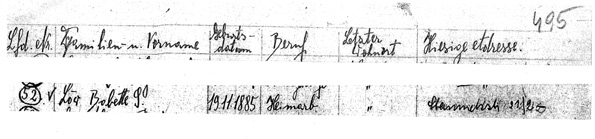 495
Lfd. No. Familien- u. Vorname Geburts-datum Beruf Letzter Wohnort Hiesige Adresse.
52. Löw Babette S. 19.11.1885 "